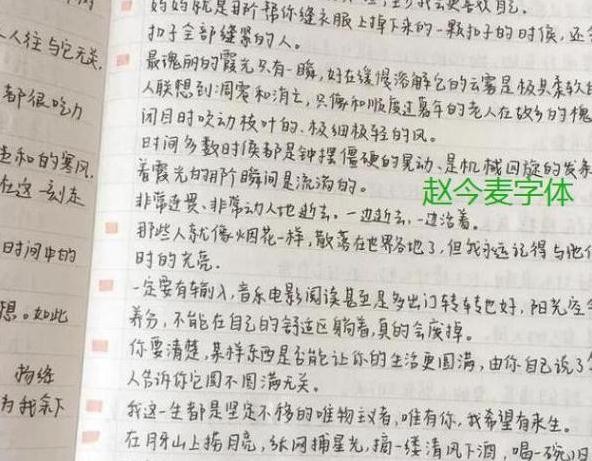 人往与它无关.
都很吃力
和的寒风.
在这一刻走
时间中的
想。如此
为我余下
妈妈就是那个帮你缝衣服上掉下来的一颗扣子的时候,还会
扣子全部缝紧的人。
最瑰丽的霞光只有一瞬,好在缓慢溶解它的云雾是极其柔软的
人联想到凋零和消亡,只像和顺度过暮年的老人在故乡的槐
闭目时吹动枝叶的、极细极轻的风。
时间多数时候都是钟摆僵硬的晃动、是机械回旋的发条
着霞光的那个瞬间是流淌的。
赵今麦字体
非常连贯、非常动人地逝去。一边逝去,一边活着。
那些人就像烟花一样,散落在世界各地了,但我永远记得与他们
时的光亮。
一定要有输入,音乐电影阅读甚至是多出门转转也好,阳光空
养分,不能在自己的舒适区躺着,真的会废掉。
你要清楚,某样东西是否能让你的生活更圆满,由你自己说了
人告诉你它圆不圆满无关。
我这一生都是坚定不移的唯物主义者,唯有你,我希望有来生。
在月牙山上捞月亮,纵网捕星光,摘一缕清风下酒,喝一碗